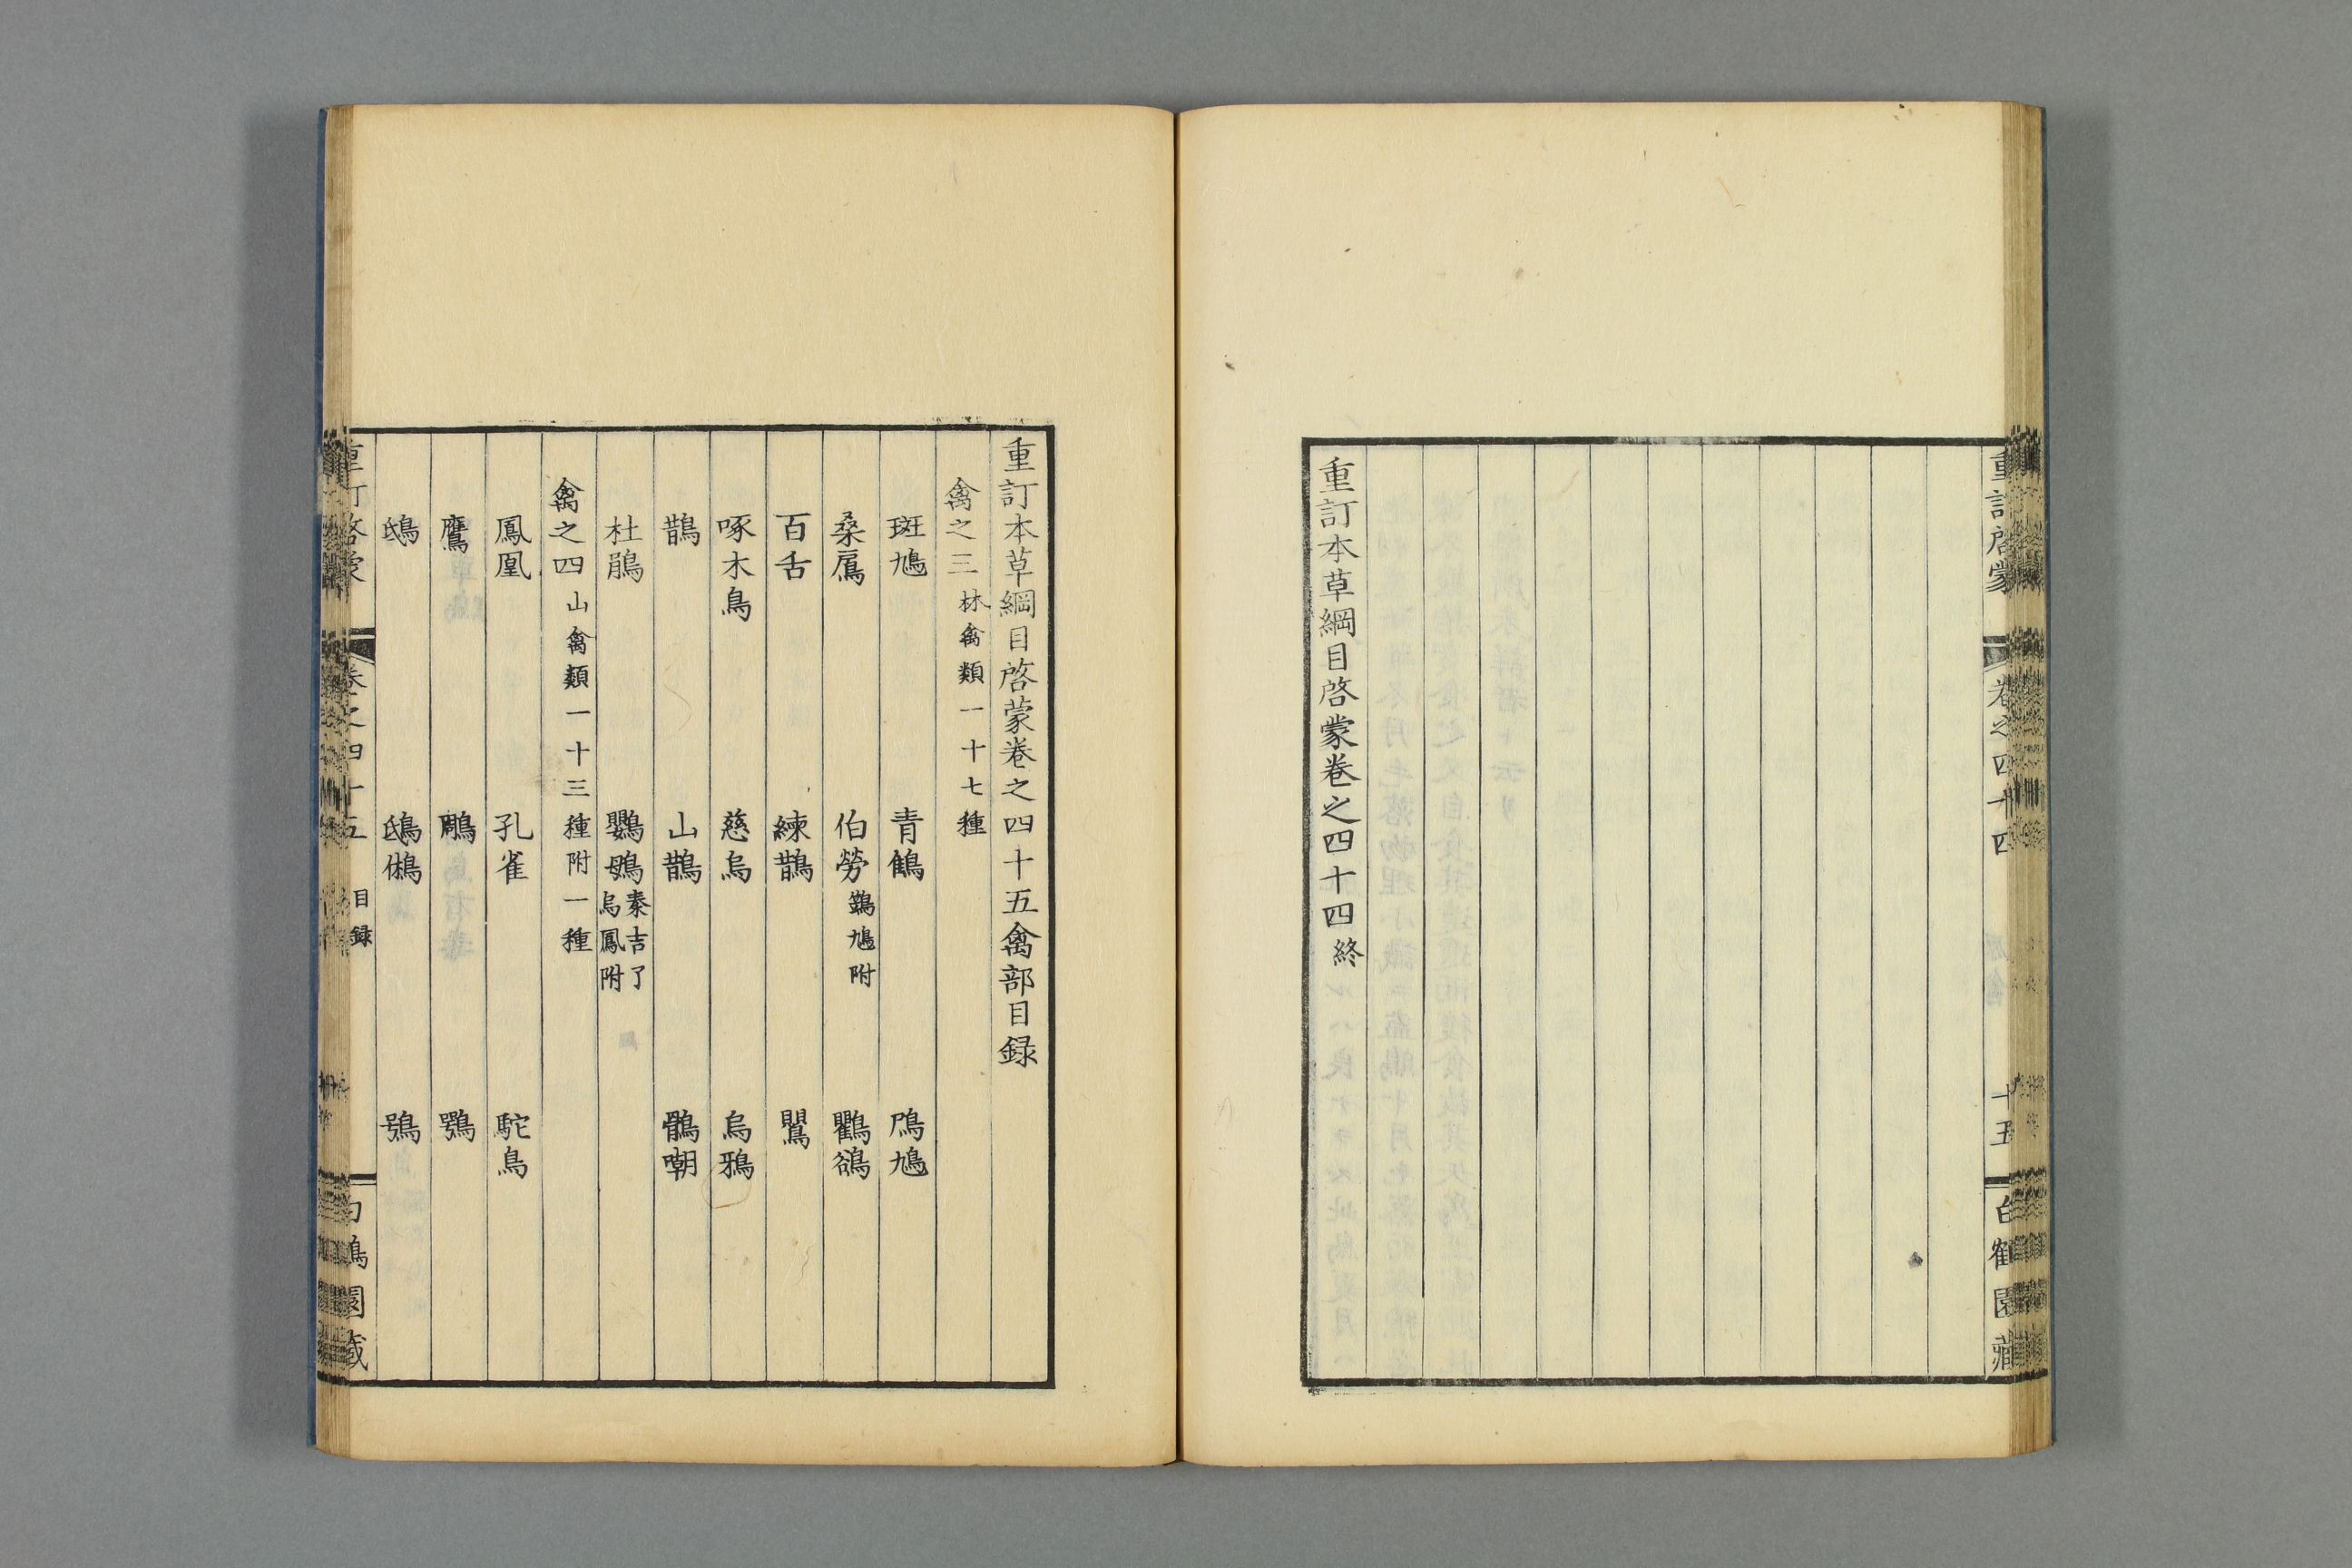 重訂啓蒙 卷之四十四 十五 白鶴園藏
重訂本草綱目啓蒙卷之四十四終
重訂本草綱目啓蒙卷之四十五禽部目録
禽之三 林禽類一十七種
斑鳩 青鶴 鳲鳩
桑鳸 伯勞 鷑鳩附 鸜鵒
百舌 練鵲 鶪
啄木鳥 慈烏 烏鴉
鵲 山鵲 鶻嘲
杜鵑 鸚䳇 秦吉了 烏鳳附
禽之四 山禽類一十三種附一種
鳳凰 孔雀 駝鳥
鷹 鵰 鶚
鴟 鴟鵂 鴞
重訂啓蒙 卷之四十五 目録 白鶴園藏